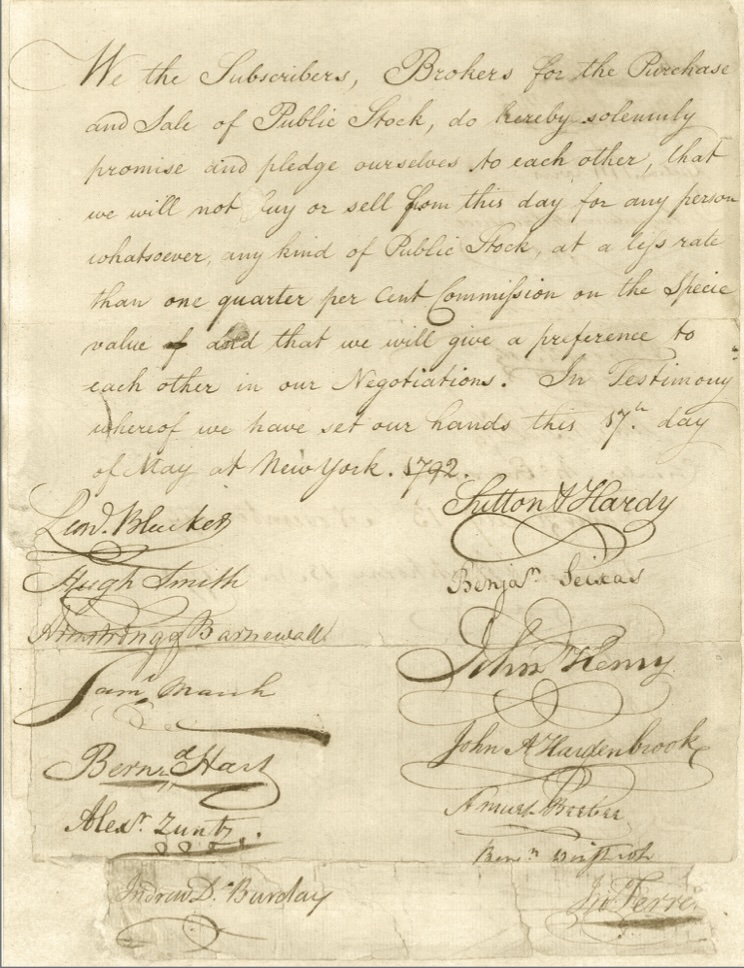 We the Subscribers, Brokers for the Purchase
and Sale of Public Stock, do hereby solemnly
promise and pledge ourselves to each other, that
we will not buy or sell from this day for any person
whatsoever, any kind of Public Stock, at a less rate
than one quarter per Cent Commission on the Specie
value of and that we will give a preference to
each other in our Negotiations. In Testimony
whereof we have set our hands this 17th. day
of May at New York. 1792.
Leod. Bleecker
Hugh Smith
Armstrong & Barnewall
Saml. March
Bernrd. Hart
Alexr. Zuntz.
Andrew D. Barclay
Sutton & Hardy
Benjan. Seixas
John Henry
John A Hardenbrook
Amurt Beebee